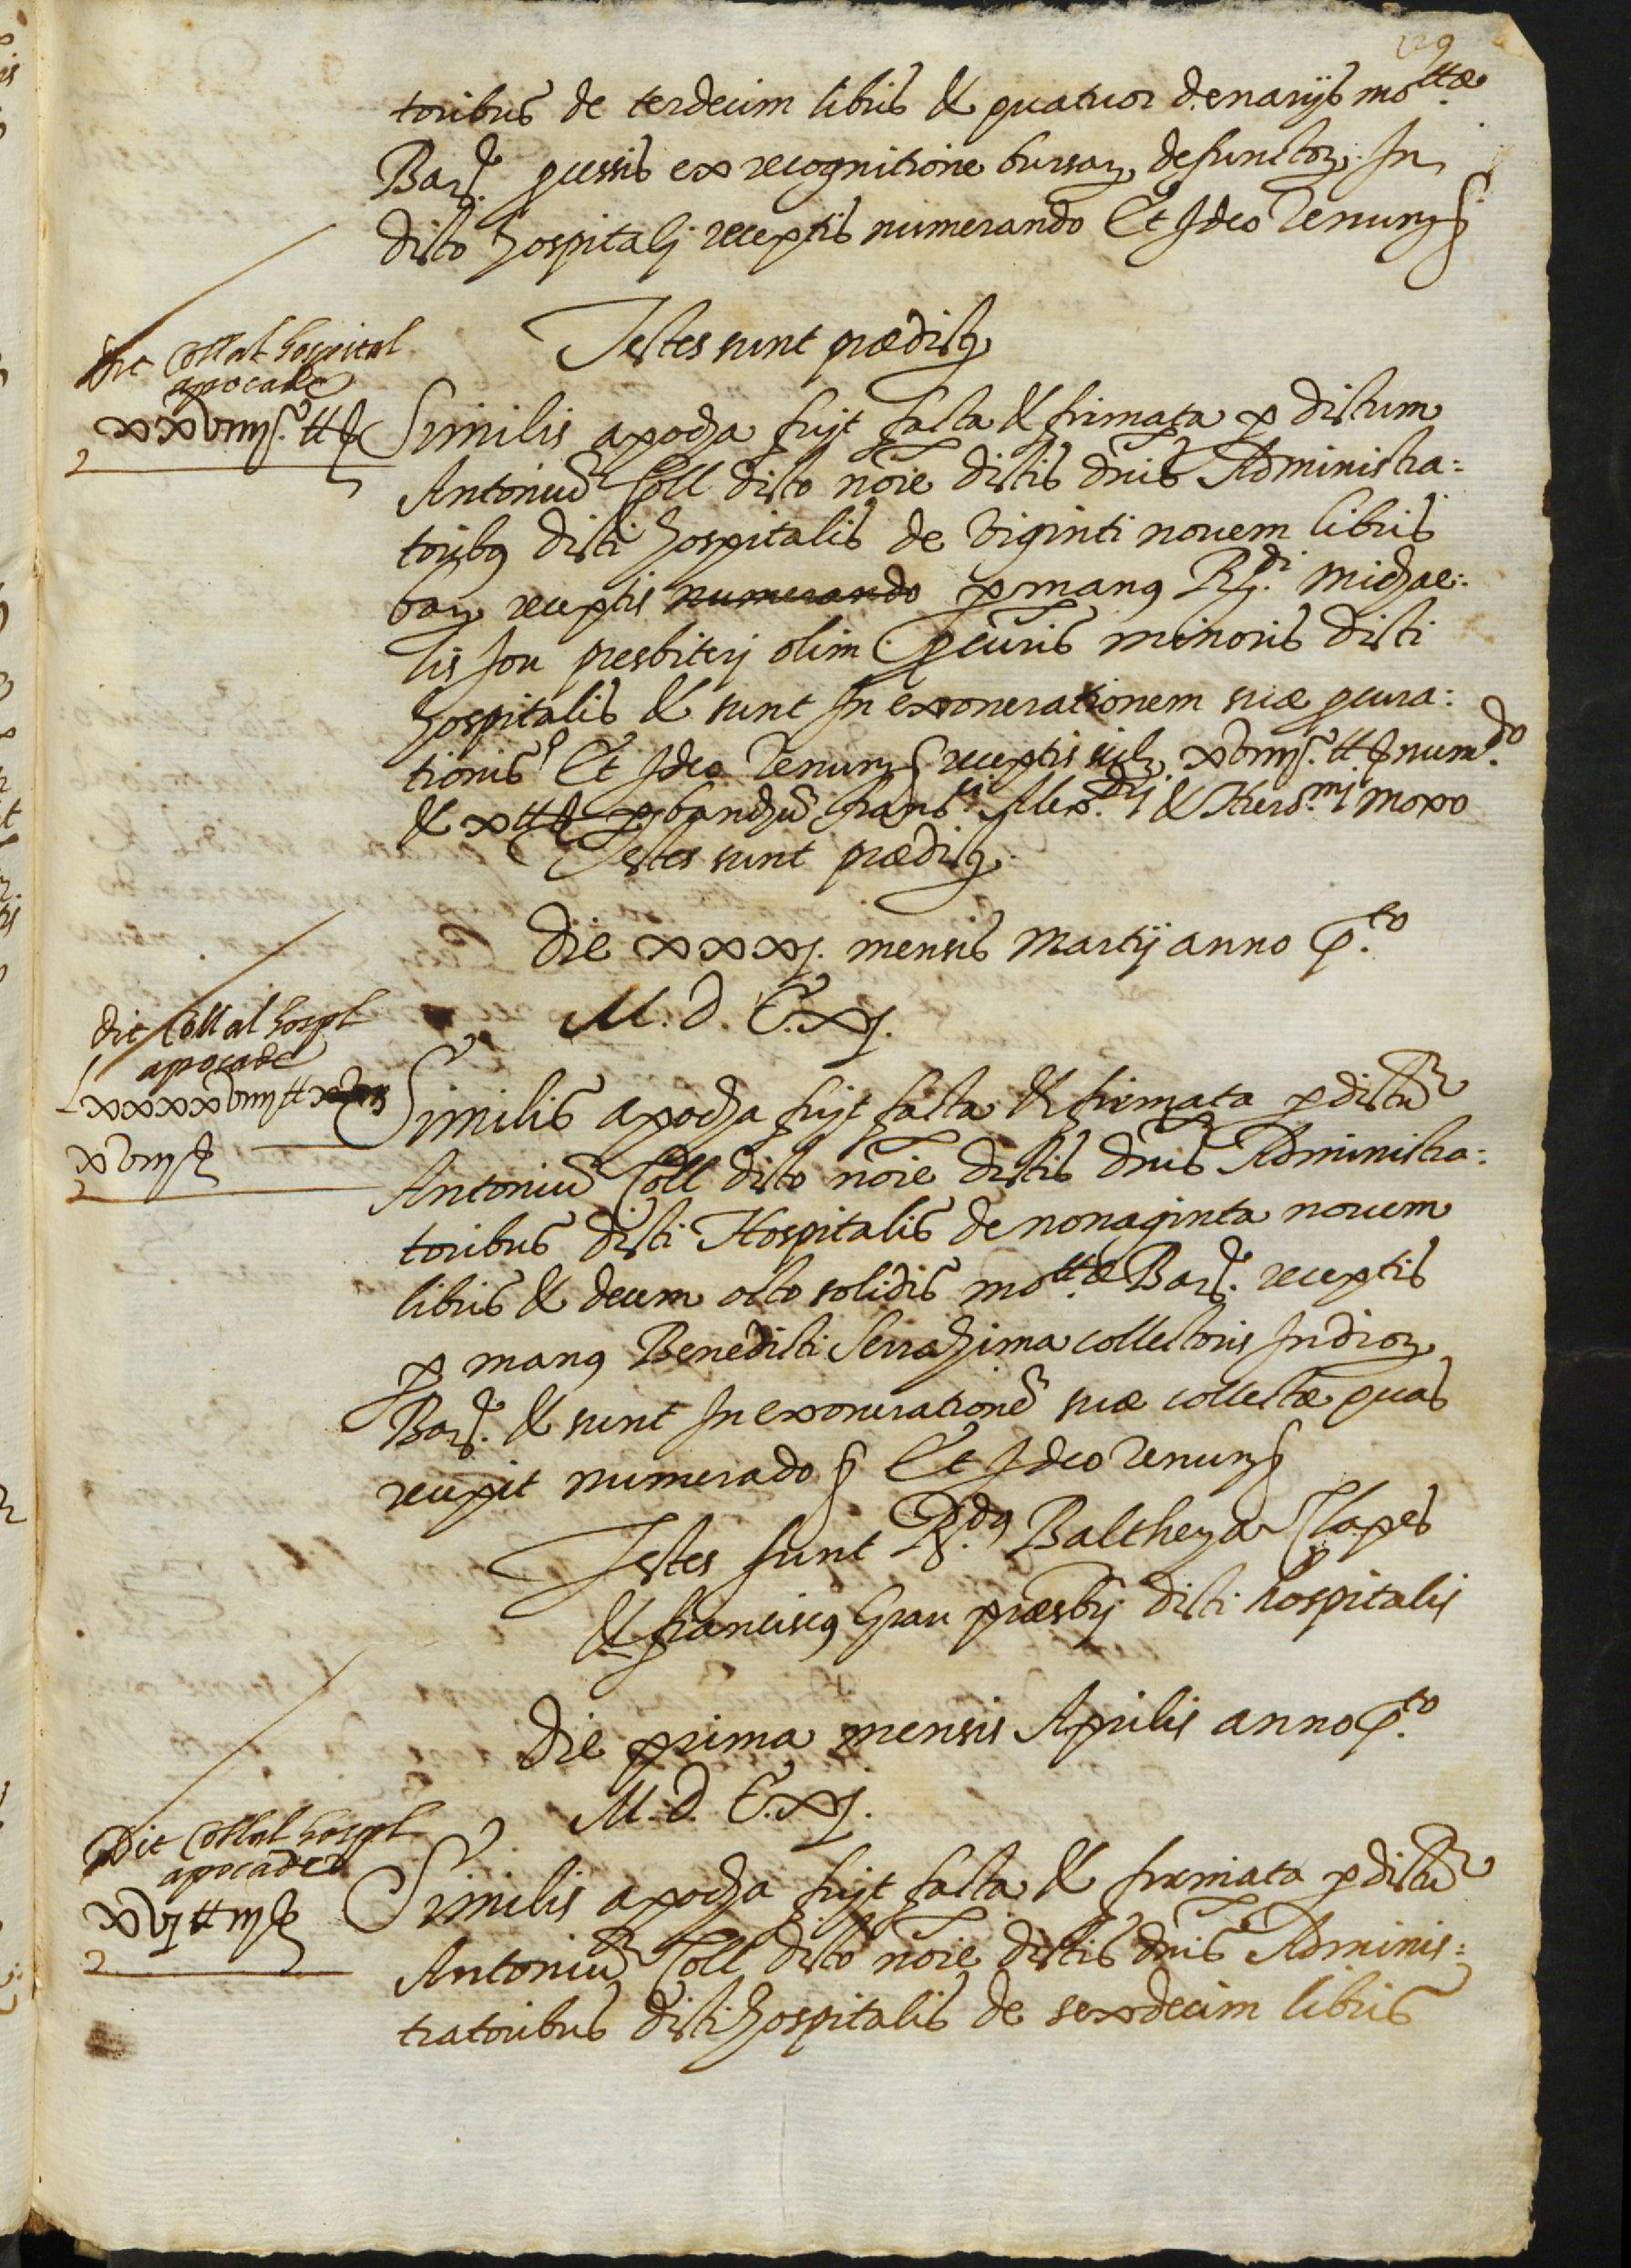 129
toribus de terdecim libris & quatuor denarijs mo.ttæ
Bar. p̱cessis ex recognitione bursaꝝ defunctoꝝ In
dicto hospitalj receptis numerando Et Ideo Renunꝫ
Testes sunt prædictj
Dit Coll al hospital
apoca de
Similis apocha fujt facta & firmata p̱ dictum
Antoniū Coll dicto nōie dictis dnīs Administra=
toribꝰ dicti hospitalis de viginti novem libris
baꝝ receptis numerando p̱ manꝰ R.di michae=
lis Jou presbiterj olim p̱curīs minoris dicti
hospitalis & sunt In exonerationem suæ p̱cura=
tionis Et Ideo Renunꝫ receptis xviiij. tt num.do
& x tt p̱ banchū & Hiero.mj moxo
Testes sunt prædictj.
Die xxxj. mensis Martij anno p̄.to
M.D.C.xj.
Dit Coll al hospl
apoca de
Similis apocha fujt facta & firmata p̱ dictū
Antoniū Coll dicto nōie dictis dnīs Administra=
toribus dicti Hospitalis de nonaginta novem
libris & decem octo solidis mo.ttæ Bar. receptis
p̱ manꝰ Benedicti Serrahima collectoris Indioꝝ
Bar. & sunt In exonerationē suæ collectæ quas
recepit numerado Et Ideo Renunꝫ
Testes sunt R.dꝰ Balthezar Clapes
& franciscꝰ Grau præsbrj dicti hospitalis
Die prima mensis Aprilis anno p̄.to
M.D.C.xj.
Dit Coll al hospl
apoca de
xvj tt
Similis apocha fujt facta & firmata p̱ dictū
Antoniū Coll dicto nōie dictis dnīs Adminis=
tratoribus dicti hospitalis de sexdecim libris